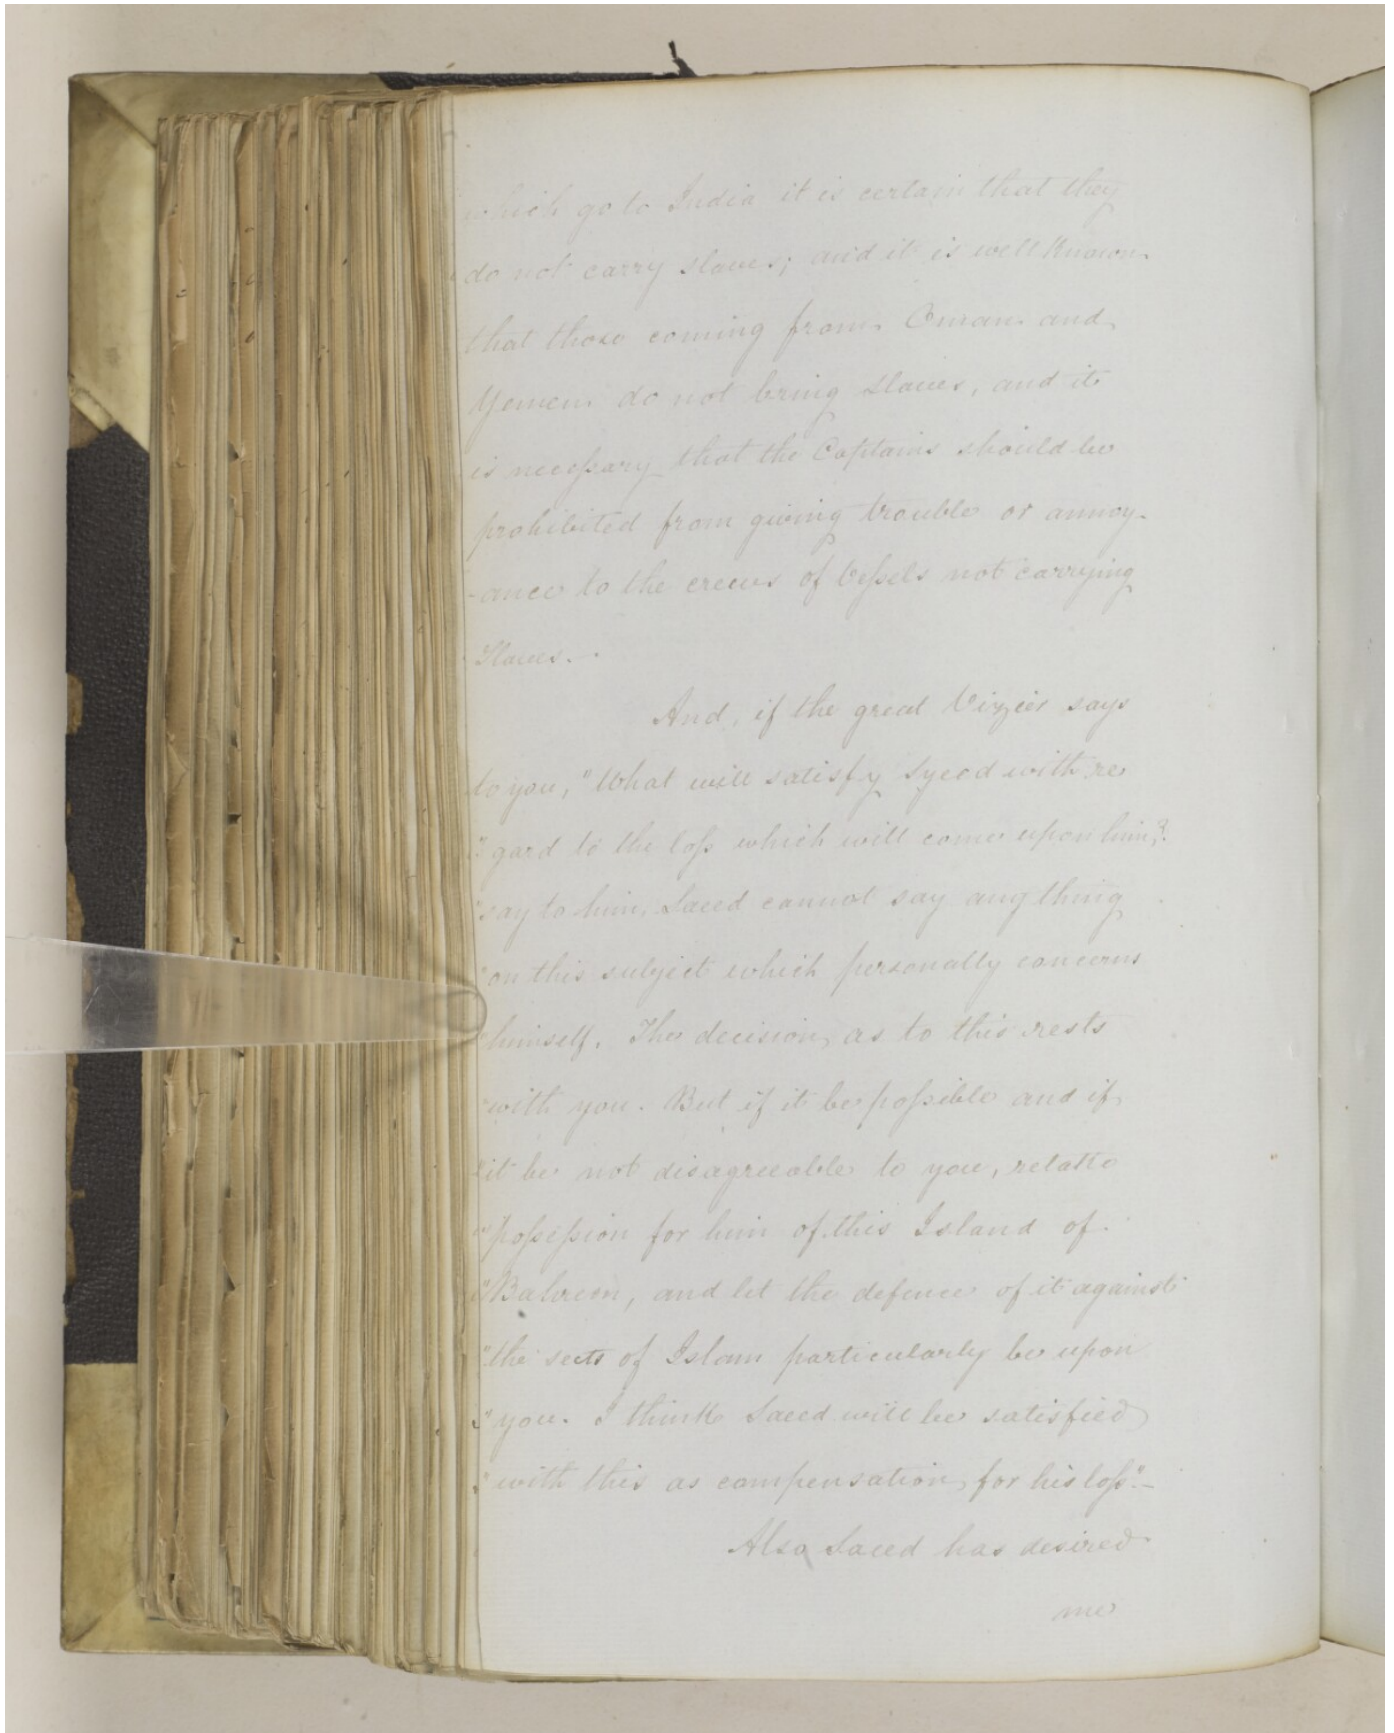 which go to India it is certain that they
do not carry slaves; and it is well known
that those coming from Oman and
Yemen do not bring slaves, and it
is necessary that the Captains should be
prohibited from giving trouble or annoy-
-ance to the crews of Vessels not carrying
Slaves.-
And, if the great Vizier says
to you, "What will satisfy Syeed with re
" gard to the loss which will come upon him,?
"say to him, Saeed cannot say any thing
"on this subject which personally concerns
"himself. The decision, as to this rests
"with you. But if it be possible and if
"it be not disagreeable to you,
"possession for him of this Island of
"Bahrein, and let the defence of it against
"the sects of Islam particularly be upon
"you. I think Saeed will be satisfied
"with this as compensation for his loss".-
Also Saeed has desired
me